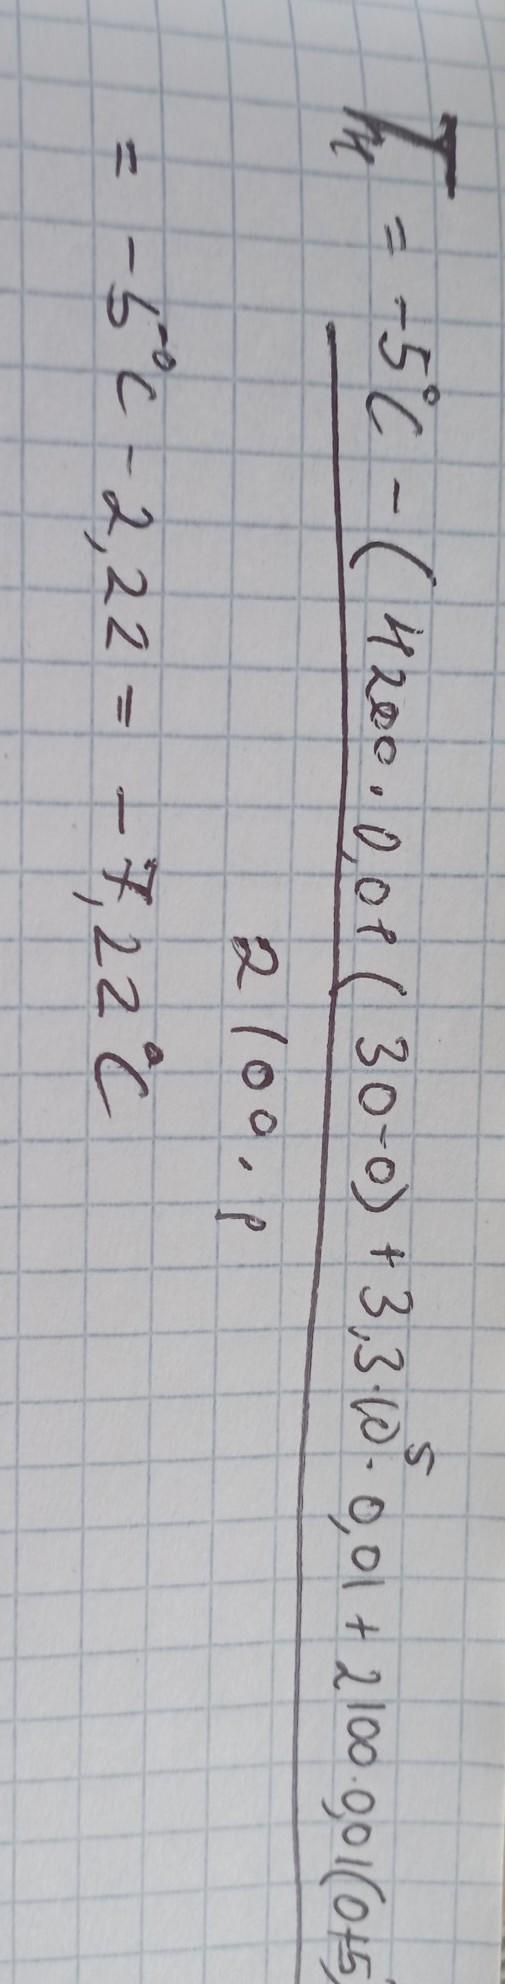 Tн = -5°C - (4200·0,01(30-0)+3,3·10⁵·0,01+2100·0,01(0+5)
2100·1
= -5°C - 2,22 = -7,22°C